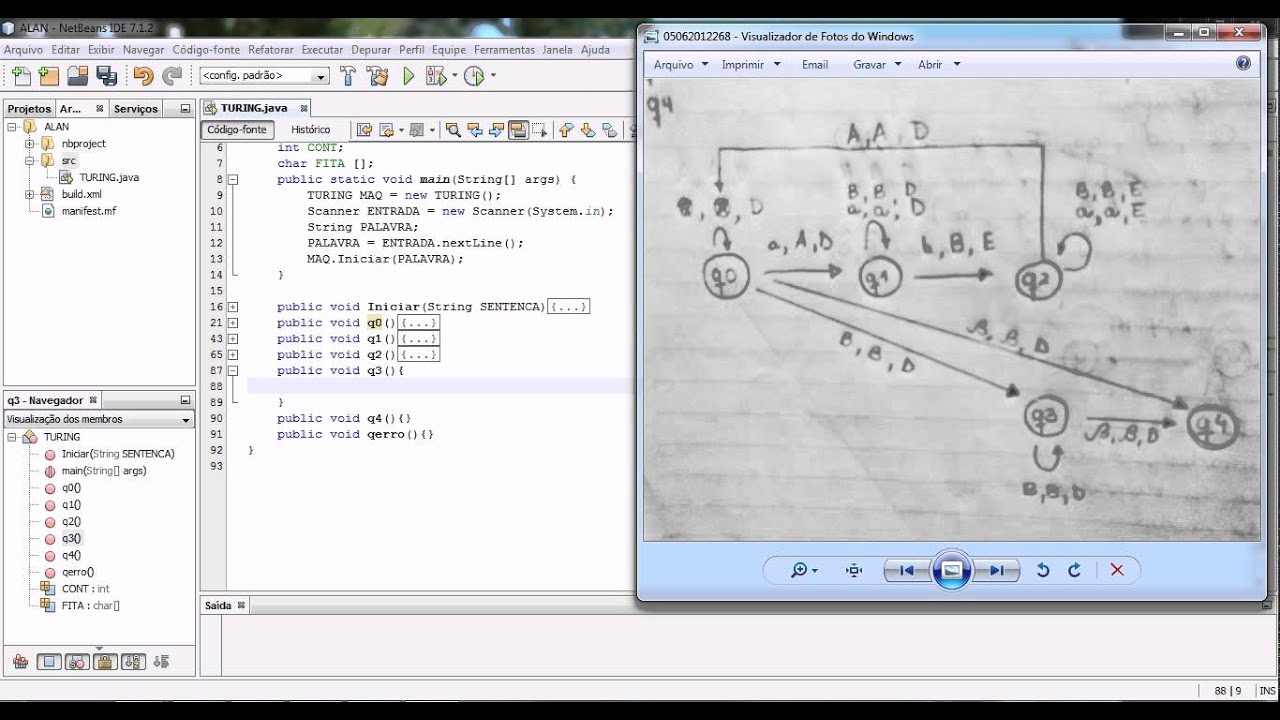 ALAN - NetBeans IDE 7.1.2
Arquivo Editar Exibir Navegar Código-fonte Refatorar Executar Depurar Perfil Equipe Ferramentas Janela Ajuda
<config. padrão>
Projetos Ar... Serviços
ALAN
nbproject
src
TURING.java
build.xml
manifest.mf
q3 - Navegador
Visualização dos membros
TURING
Iniciar(String SENTENCA)
main(String[] args)
q0()
q1()
q2()
q3()
q4()
qerro()
CONT : int
FITA : char[]
TURING.java
Código-fonte Histórico
6 int CONT;
7 char FITA [];
8 public static void main(String[] args) {
9 TURING MAQ = new TURING();
10 Scanner ENTRADA = new Scanner(System.in);
11 String PALAVRA;
12 PALAVRA = ENTRADA.nextLine();
13 MAQ.Iniciar(PALAVRA);
14 }
15
16 public void Iniciar(String SENTENCA){...}
21 public void q0(){...}
43 public void q1(){...}
65 public void q2(){...}
87 public void q3(){
88
89 }
90 public void q4(){}
91 public void qerro(){}
92 }
93
Saída
88 | 9 INS
05062012268 - Visualizador de Fotos do Windows
Arquivo Imprimir Email Gravar Abrir
q4
A, A, D
B, B, D
a, a, D
B, B, E
a, a, E
a, A, D
b, B, E
q0
q1
q2
B, B, D
ß, ß, D
q3
ß, ß, D
q4
B, B, D